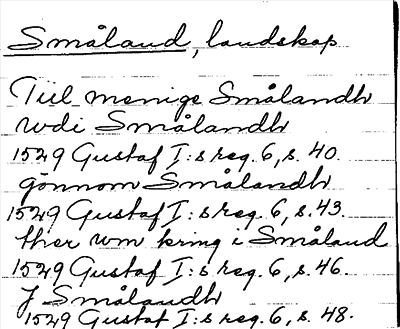 Småland, landskap
Till menige Smålandh
wdi Smålandh
1529 Gustaf I:s reg. 6, s. 40.
gönnom Smålandh
1529 Gustaf I:s reg. 6, s. 43.
ther wm kring i Småland
1529 Gustaf I:s reg. 6, s. 46.
J Smålandh
1529 Gustaf I:s reg. 6, s. 48.